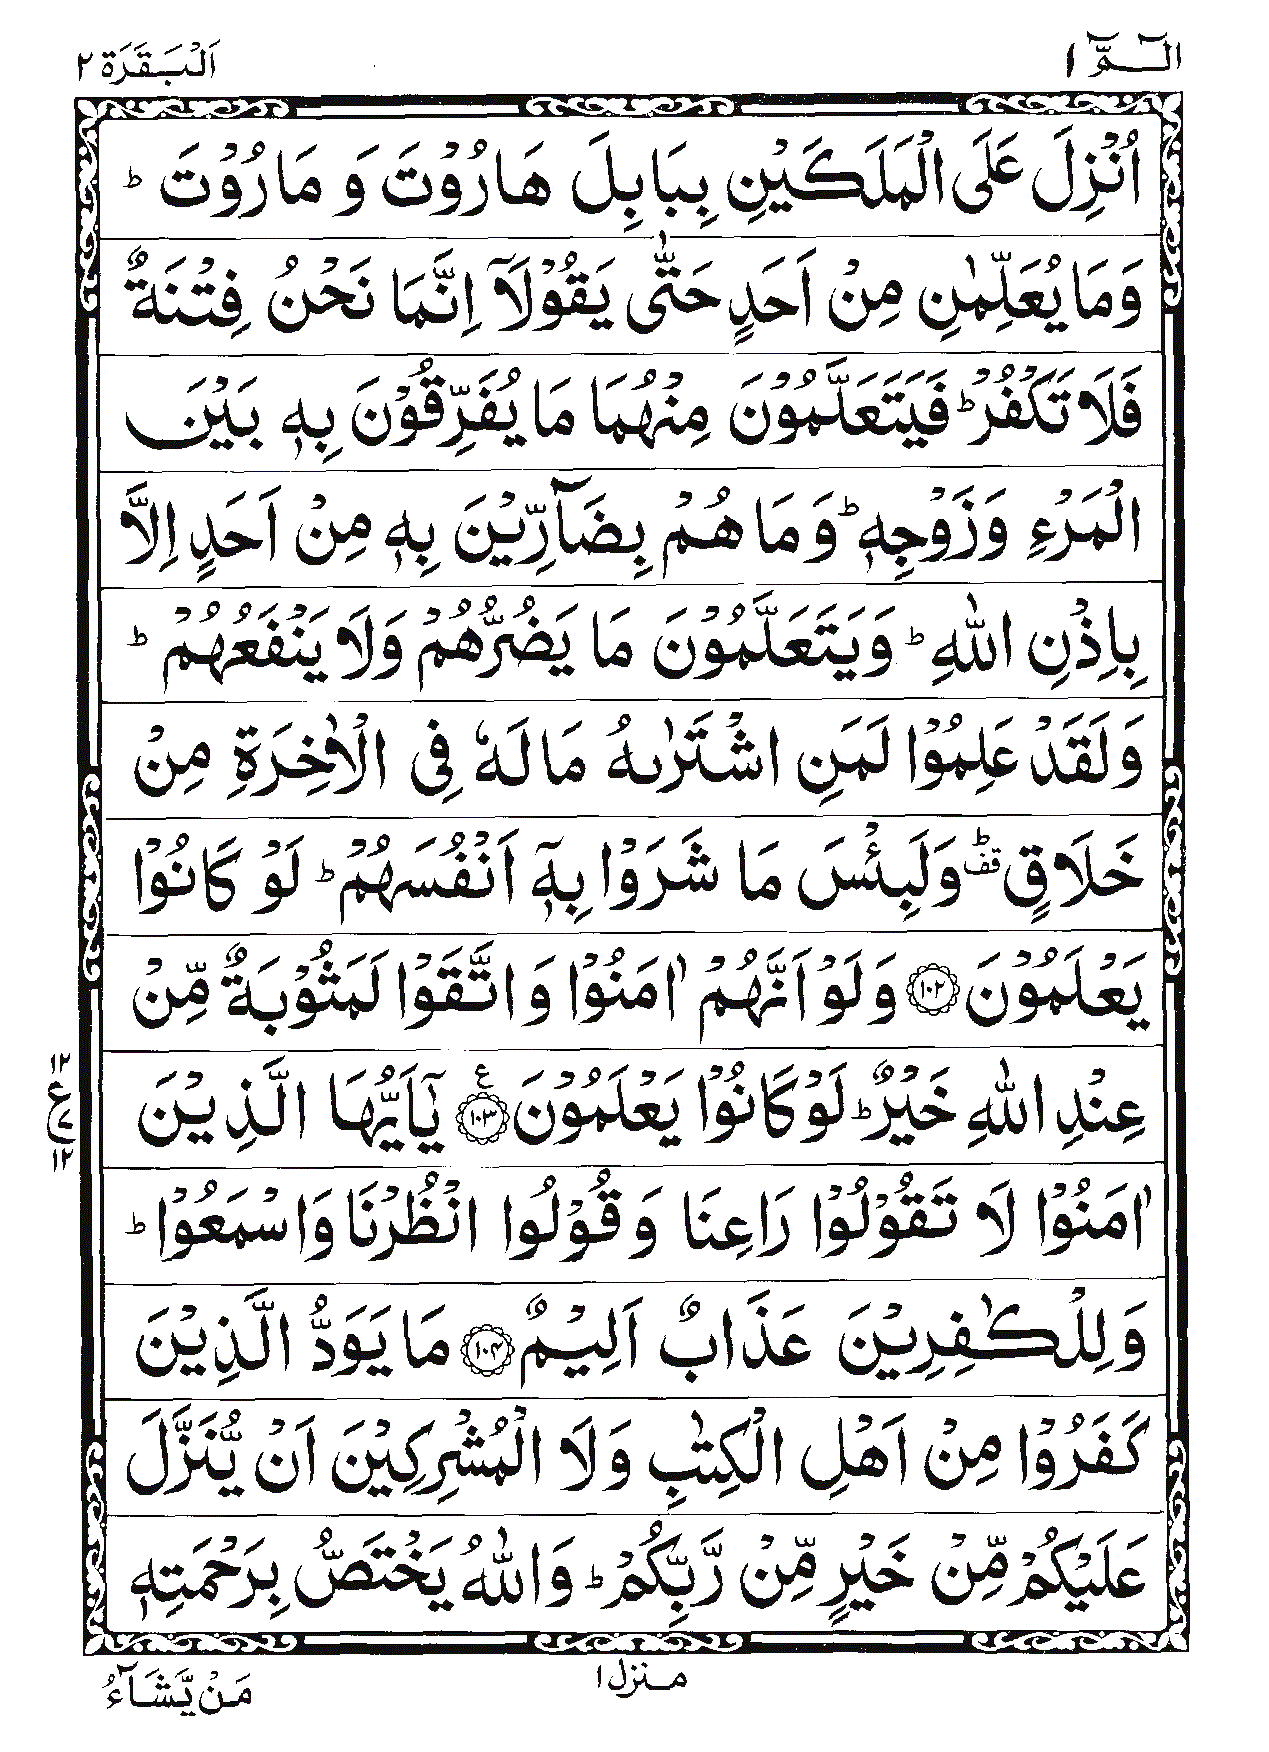 الٓـمّٓ ١
اَلْبَقَرَة ٢
اُنْزِلَ عَلَى الْمَلَكَيْنِ بِبَابِلَ هَارُوْتَ وَ مَارُوْتَ ؕ
وَمَا يُعَلِّمٰنِ مِنْ اَحَدٍ حَتّٰى يَقُوْلَاۤ اِنَّمَا نَحْنُ فِتْنَةٌ
فَلَا تَكْفُرْ ؕ فَيَتَعَلَّمُوْنَ مِنْهُمَا مَا يُفَرِّقُوْنَ بِهٖ بَيْنَ
الْمَرْءِ وَزَوْجِهٖ ؕ وَمَا هُمْ بِضَآرِّيْنَ بِهٖ مِنْ اَحَدٍ اِلَّا
بِاِذْنِ اللّٰهِ ؕ وَيَتَعَلَّمُوْنَ مَا يَضُرُّهُمْ وَلَا يَنْفَعُهُمْ ؕ
وَلَقَدْ عَلِمُوْا لَمَنِ اشْتَرٰىهُ مَا لَهٗ فِى الْاٰخِرَةِ مِنْ
خَلَاقٍ ؕ قف وَلَبِئْسَ مَا شَرَوْا بِهٖۤ اَنْفُسَهُمْ ؕ لَوْ كَانُوْا
يَعْلَمُوْنَ ١٠٢ وَلَوْ اَنَّهُمْ اٰمَنُوْا وَ اتَّقَوْا لَمَثُوْبَةٌ مِّنْ
عِنْدِ اللّٰهِ خَيْرٌ ؕ لَوْ كَانُوْا يَعْلَمُوْنَ ١٠٣ ع يٰۤاَيُّهَا الَّذِيْنَ
١٢
ع
٧
١٢
اٰمَنُوْا لَا تَقُوْلُوْا رَاعِنَا وَ قُوْلُوا انْظُرْنَا وَاسْمَعُوْا ؕ
وَلِلْكٰفِرِيْنَ عَذَابٌ اَلِيْمٌ ١٠٤ مَا يَوَدُّ الَّذِيْنَ
كَفَرُوْا مِنْ اَهْلِ الْكِتٰبِ وَلَا الْمُشْرِكِيْنَ اَنْ يُّنَزَّلَ
عَلَيْكُمْ مِّنْ خَيْرٍ مِّنْ رَّبِّكُمْ ؕ وَاللّٰهُ يَخْتَصُّ بِرَحْمَتِهٖ
منزل ١
مَنْ يَّشَآءُ